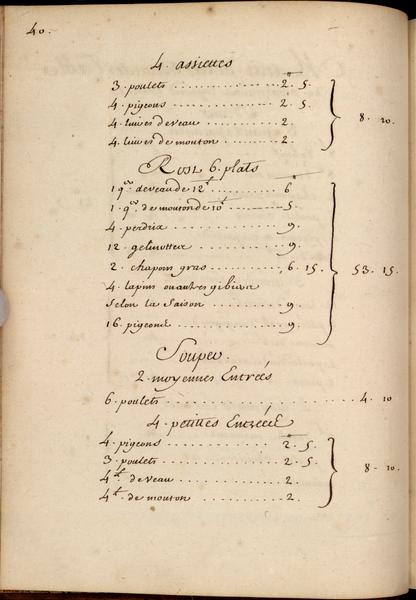 40.
4. assiettes
3. poulets .............. 2.tt 5.
4. pigeons .............. 2. 5.
4. livres de veau ......... 2.
4. livres de mouton ........ 2.
8. 10.
Rost 6. plats
1 qer. de veau de 12.l .......... 6tt
1. qer. de mouton de 10l ......... 5.
4. perdrix .............. 9.
12. gelinottes ............ 9.
2. chapons gras .......... 6. 15.
4. lapins ou autres gibier
selon la saison .......... 9.
16. pigeons .............. 9.
53. 15.
Souper.
2. moyennes Entrées
6. poulets .......................... 4. 10
4. petittes Entrées
4. pigeons .............. 2.tt 5.
3. poulets .............. 2. 5.
4l. de veau ............ 2.
4l. de mouton .......... 2.
8. 10.